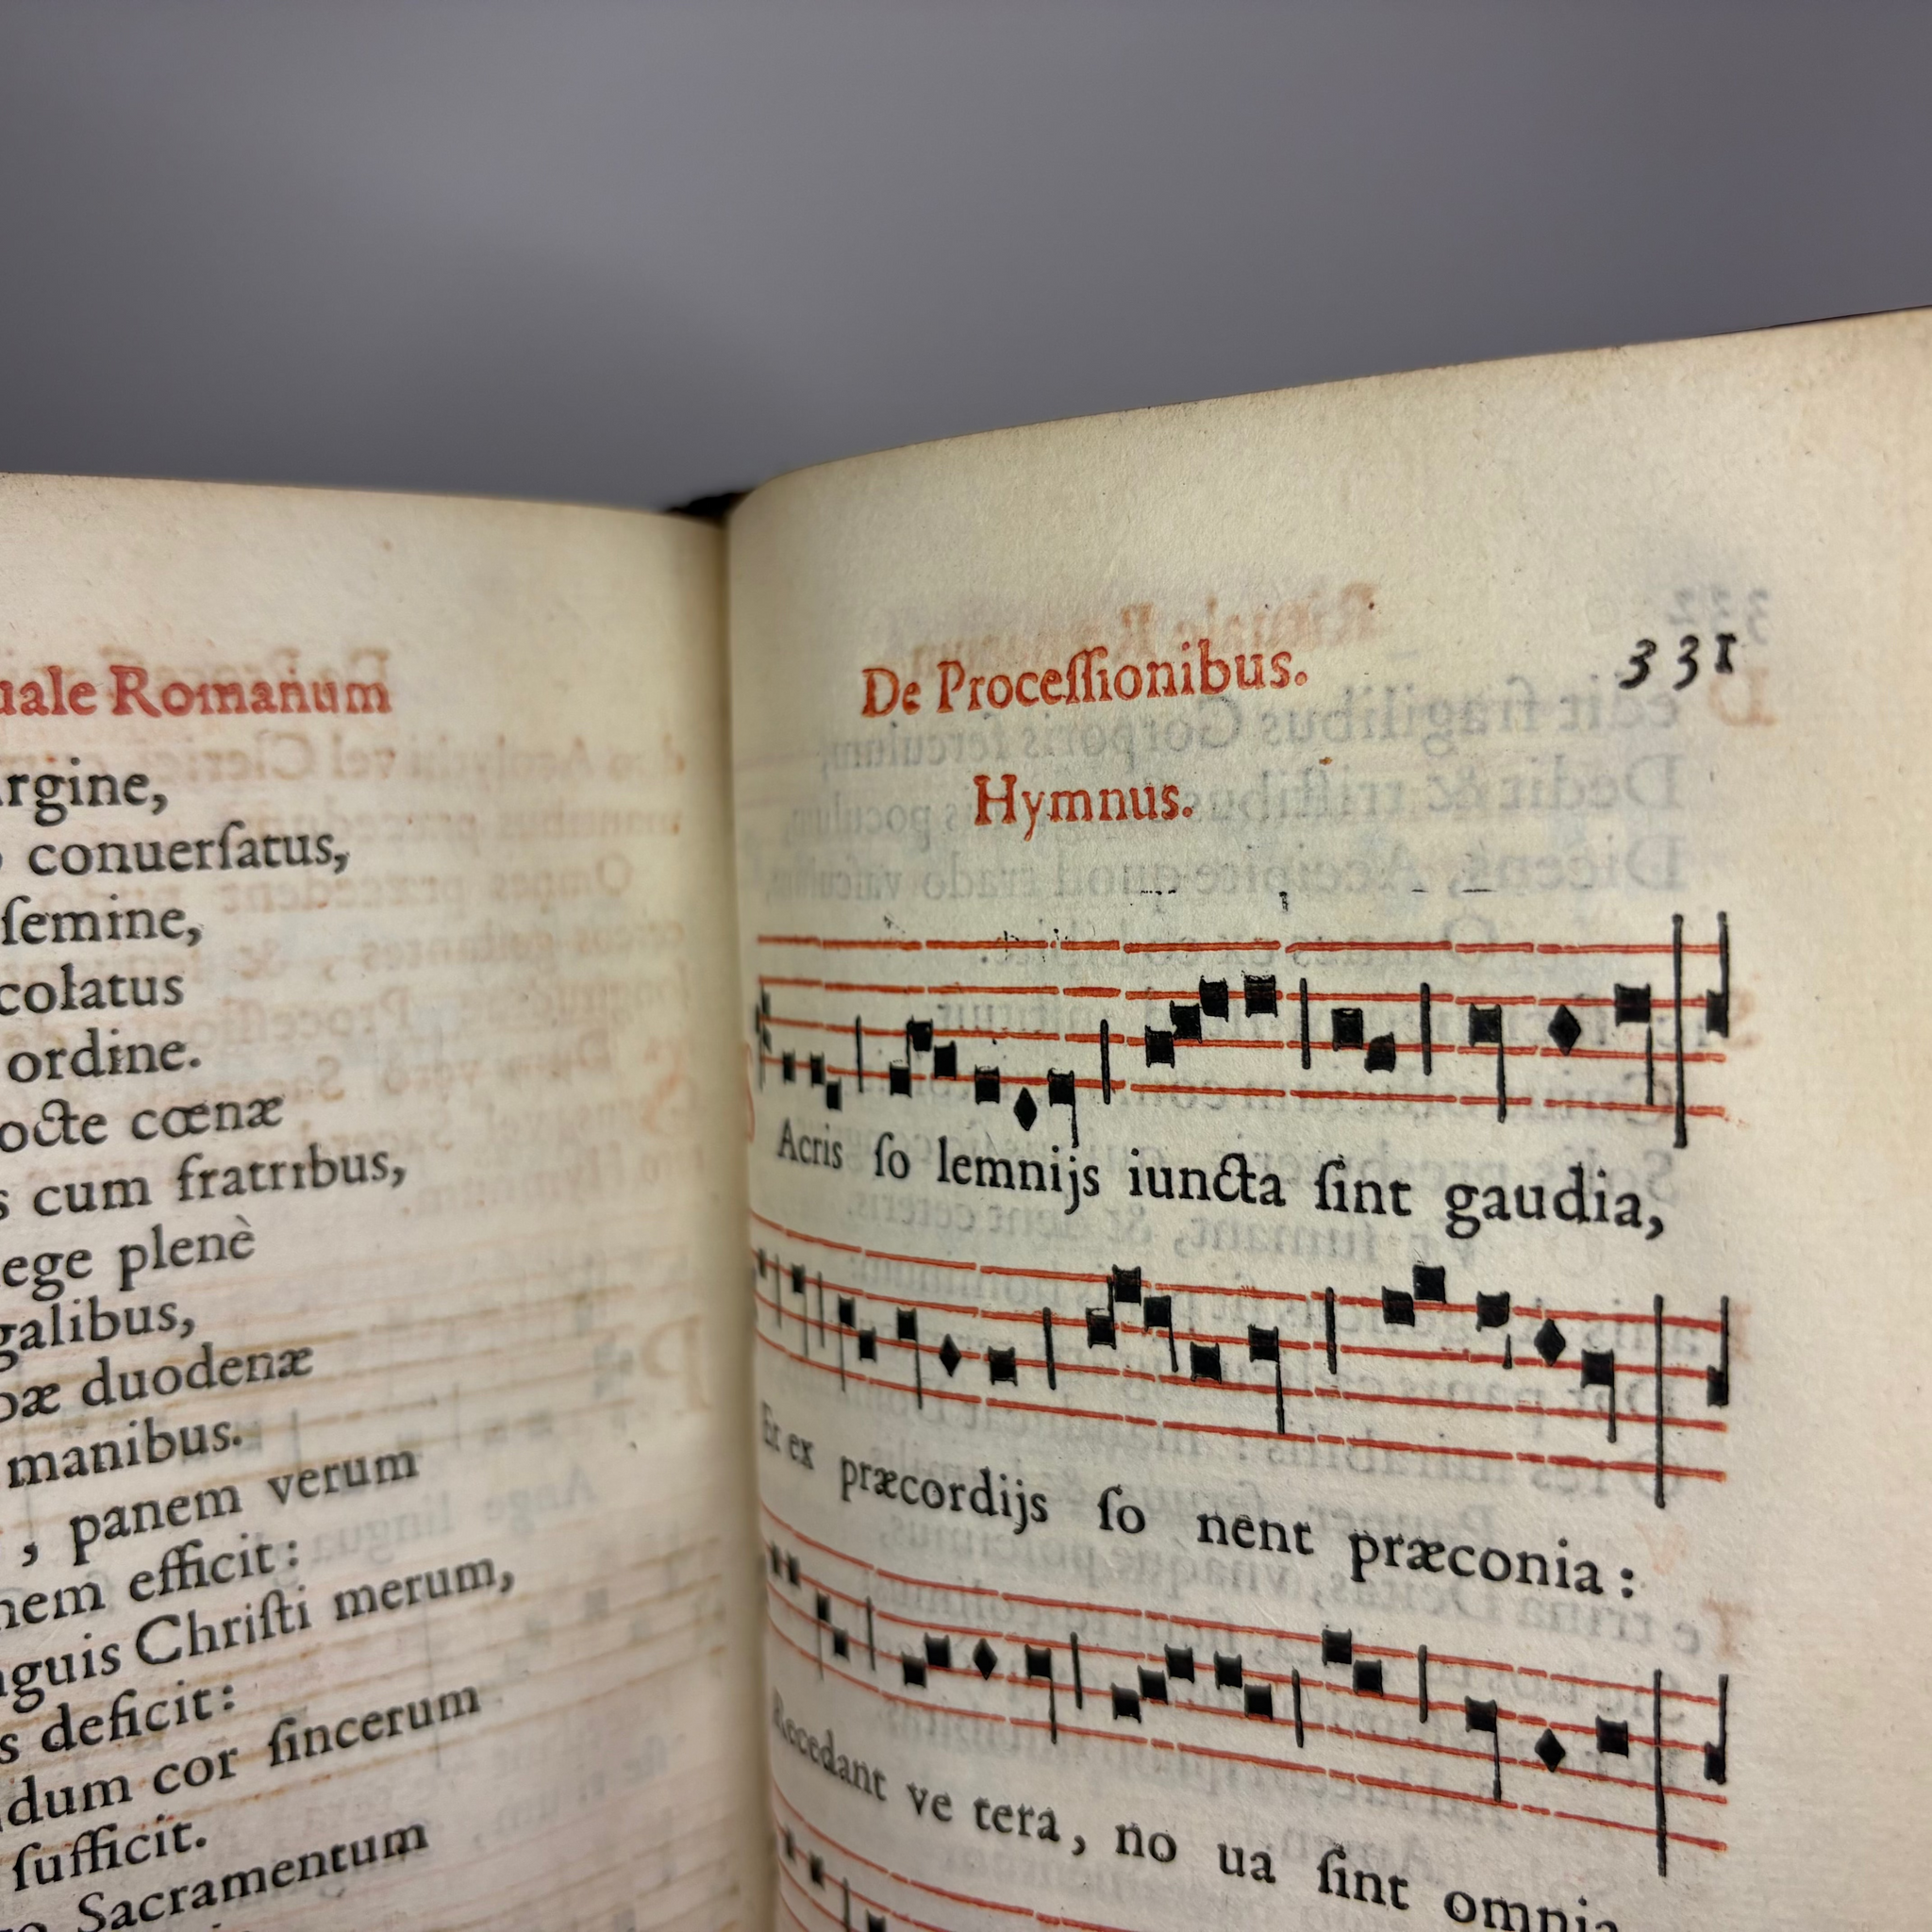 uale Romanum
rgine,
conuerſatus,
ſemine,
colatus
ordine.
octe cœnæ
s cum fratribus,
ege plenè
galibus,
bæ duodenæ
manibus.
, panem verum
nem efficit:
nguis Chriſti merum,
s deficit:
dum cor ſincerum
ſufficit.
Sacramentum
De Proceſſionibus. 331
Hymnus.
Acris ſo lemnijs iuncta ſint gaudia,
Et ex præcordijs ſo nent præconia:
Recedant ve tera, no ua ſint omnia